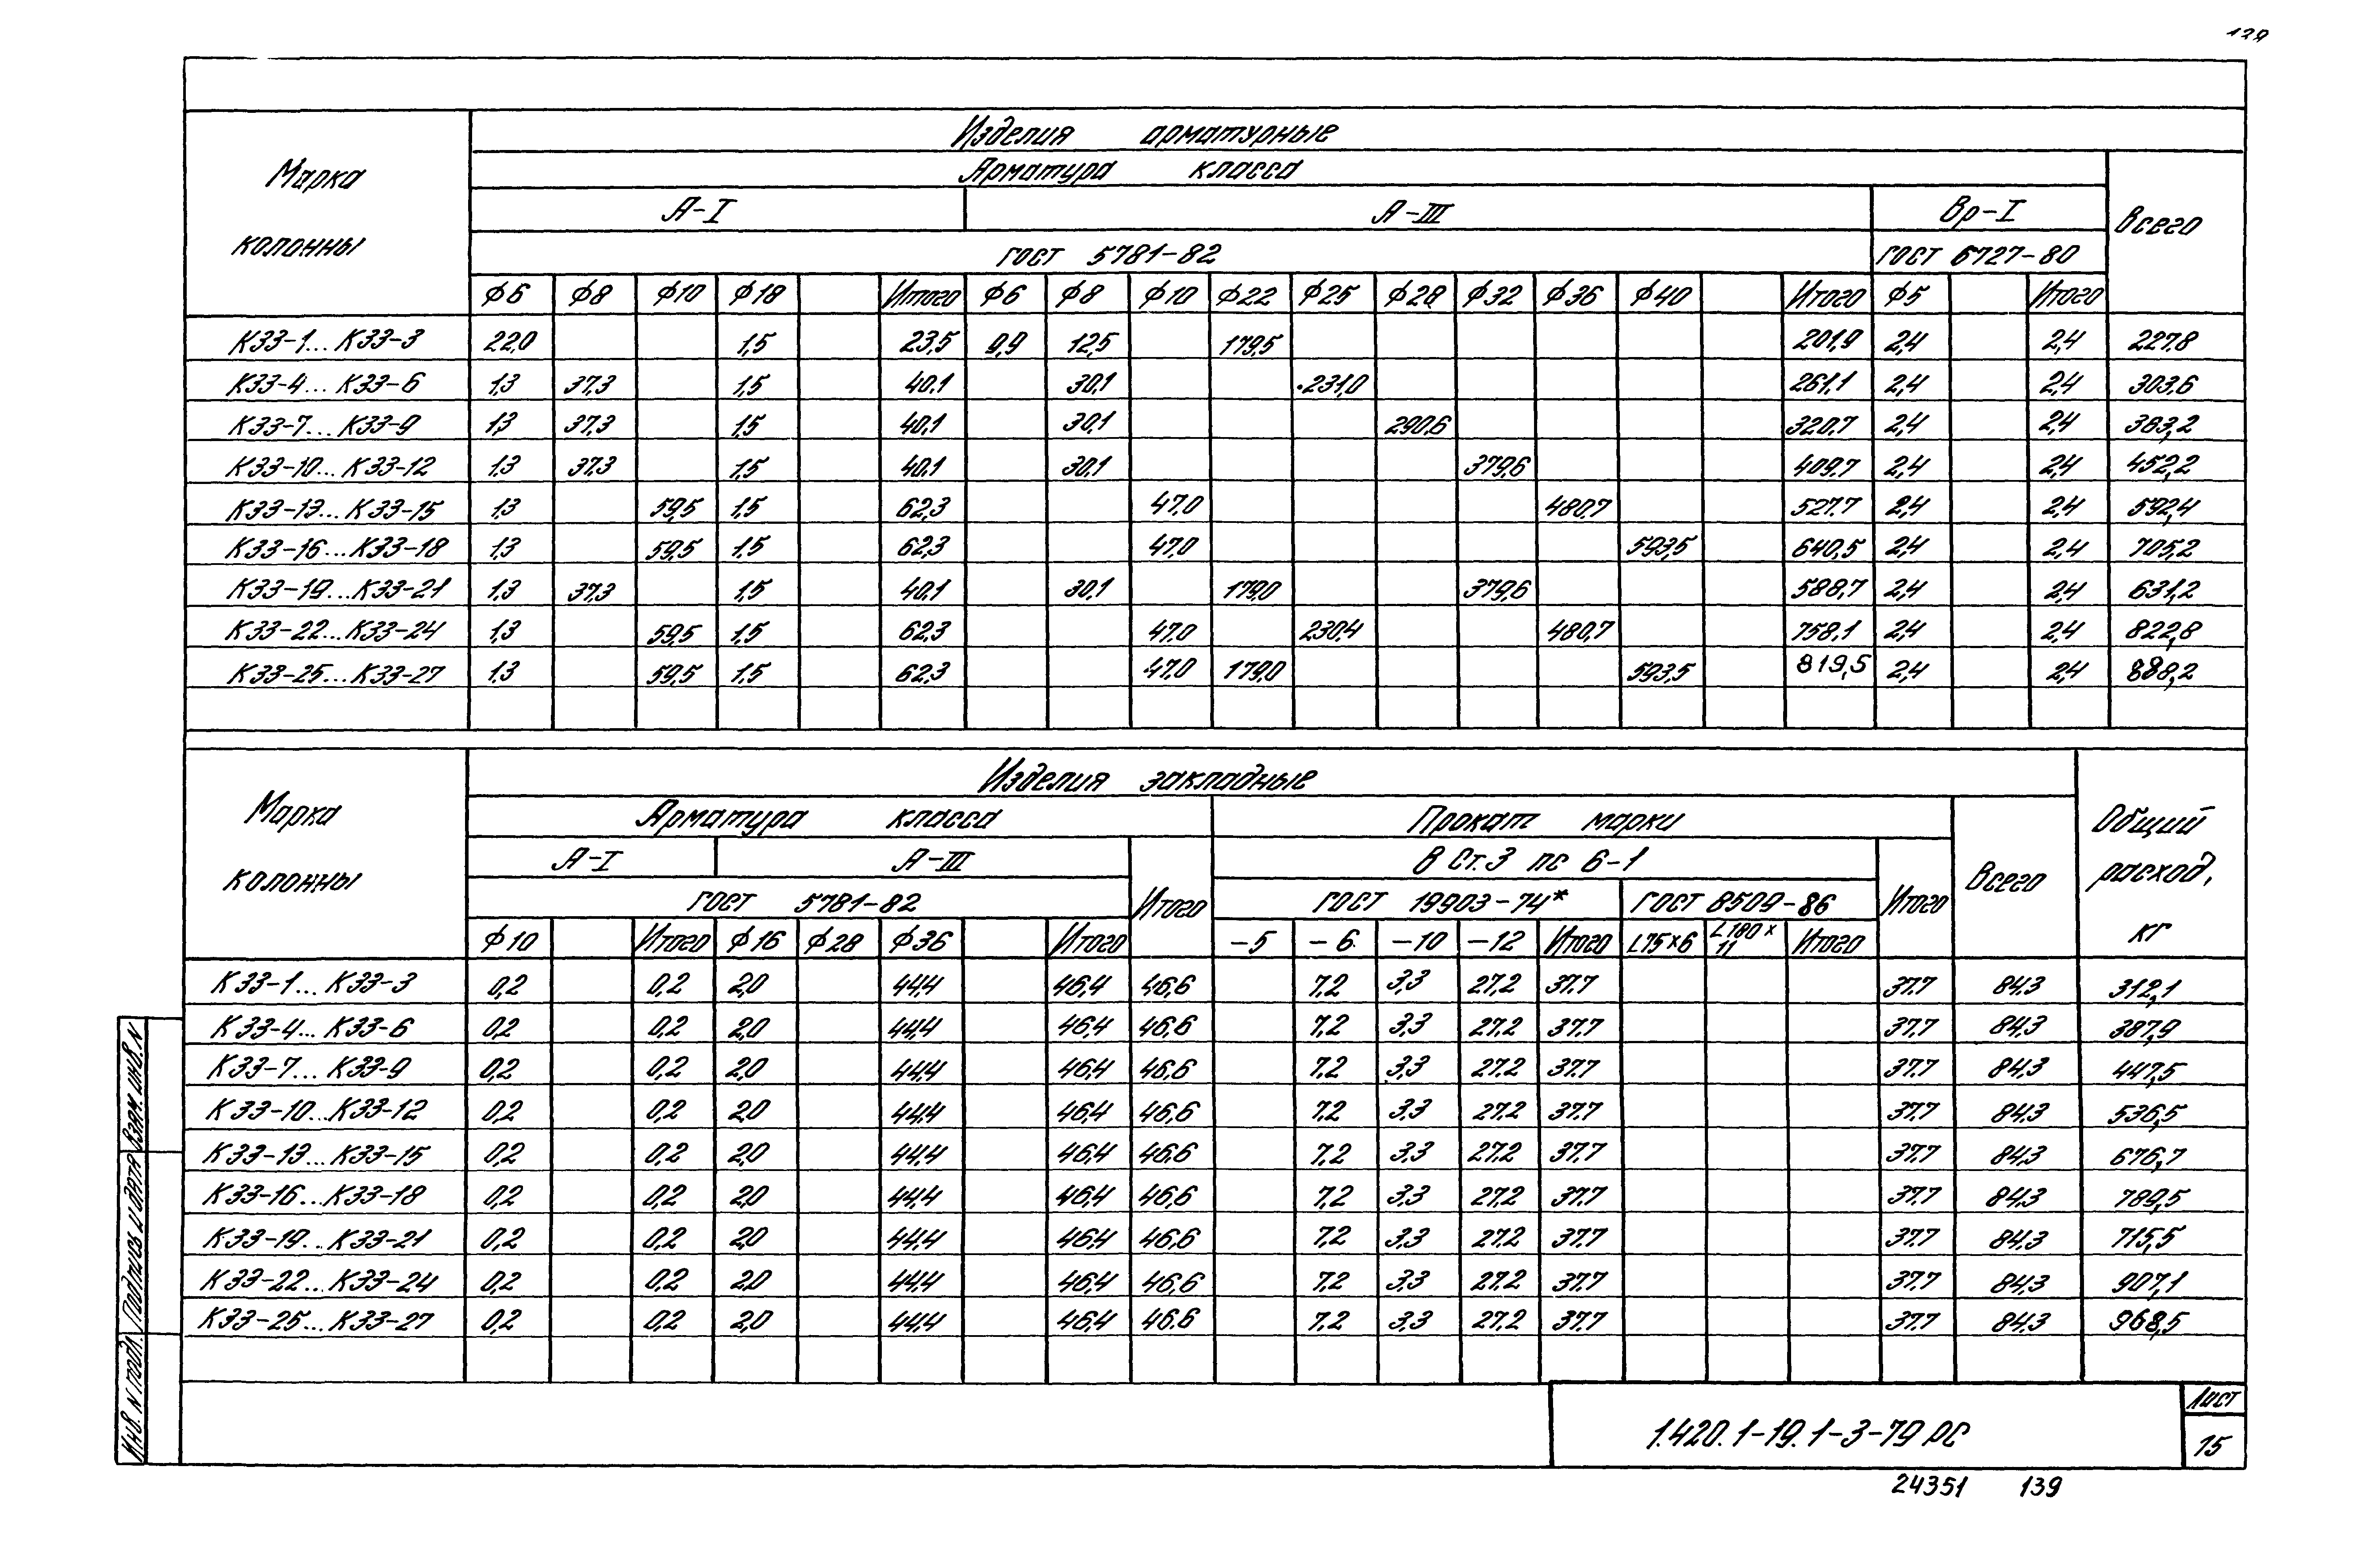 139
Изделия арматурные
Марка колонны
Арматура класса
Всего
А-I А-III Вр-I
ГОСТ 5781-82 ГОСТ 6727-80
ф6 ф8 ф10 ф18 Итого ф6 ф8 ф10 ф22 ф25 ф28 ф32 ф36 ф40 Итого ф5 Итого
К33-1...К33-3 22,0 1,5 23,5 9,9 12,5 179,5 201,9 2,4 2,4 227,8
К33-4...К33-6 1,3 37,3 1,5 40,1 30,1 231,0 261,1 2,4 2,4 303,6
К33-7...К33-9 1,3 37,3 1,5 40,1 30,1 290,6 320,7 2,4 2,4 363,2
К33-10...К33-12 1,3 37,3 1,5 40,1 30,1 379,6 409,7 2,4 2,4 452,2
К33-13...К33-15 1,3 59,5 1,5 62,3 47,0 480,7 527,7 2,4 2,4 592,4
К33-16...К33-18 1,3 59,5 1,5 62,3 47,0 593,5 640,5 2,4 2,4 705,2
К33-19...К33-21 1,3 37,3 1,5 40,1 30,1 179,0 379,6 588,7 2,4 2,4 631,2
К33-22...К33-24 1,3 59,5 1,5 62,3 47,0 230,4 480,7 758,1 2,4 2,4 822,8
К33-25...К33-27 1,3 59,5 1,5 62,3 47,0 179,0 593,5 819,5 2,4 2,4 888,2
Изделия закладные
Марка колонны
Арматура класса Прокат марки
Всего
Общий расход, кг
А-I А-III Итого В Ст.3 пс 6-1 Итого
ГОСТ 5781-82 ГОСТ 19903-74* ГОСТ 8509-86
ф10 Итого ф16 ф28 ф36 Итого -5 -6 -10 -12 Итого L75×6 L180×11 Итого
К33-1...К33-3 0,2 0,2 2,0 44,4 46,4 46,6 7,2 3,3 27,2 37,7 37,7 84,3 312,1
К33-4...К33-6 0,2 0,2 2,0 44,4 46,4 46,6 7,2 3,3 27,2 37,7 37,7 84,3 387,9
К33-7...К33-9 0,2 0,2 2,0 44,4 46,4 46,6 7,2 3,3 27,2 37,7 37,7 84,3 447,5
К33-10...К33-12 0,2 0,2 2,0 44,4 46,4 46,6 7,2 3,3 27,2 37,7 37,7 84,3 536,5
К33-13...К33-15 0,2 0,2 2,0 44,4 46,4 46,6 7,2 3,3 27,2 37,7 37,7 84,3 676,7
К33-16...К33-18 0,2 0,2 2,0 44,4 46,4 46,6 7,2 3,3 27,2 37,7 37,7 84,3 789,5
К33-19...К33-21 0,2 0,2 2,0 44,4 46,4 46,6 7,2 3,3 27,2 37,7 37,7 84,3 715,5
К33-22...К33-24 0,2 0,2 2,0 44,4 46,4 46,6 7,2 3,3 27,2 37,7 37,7 84,3 907,1
К33-25...К33-27 0,2 0,2 2,0 44,4 46,4 46.6 7,2 3,3 27,2 37,7 37,7 84,3 968,5
Взам. инв. N
Подпись и дата
Инв. N подл.
1.420.1-19.1-3-79 РС
Лист
15
24351 139